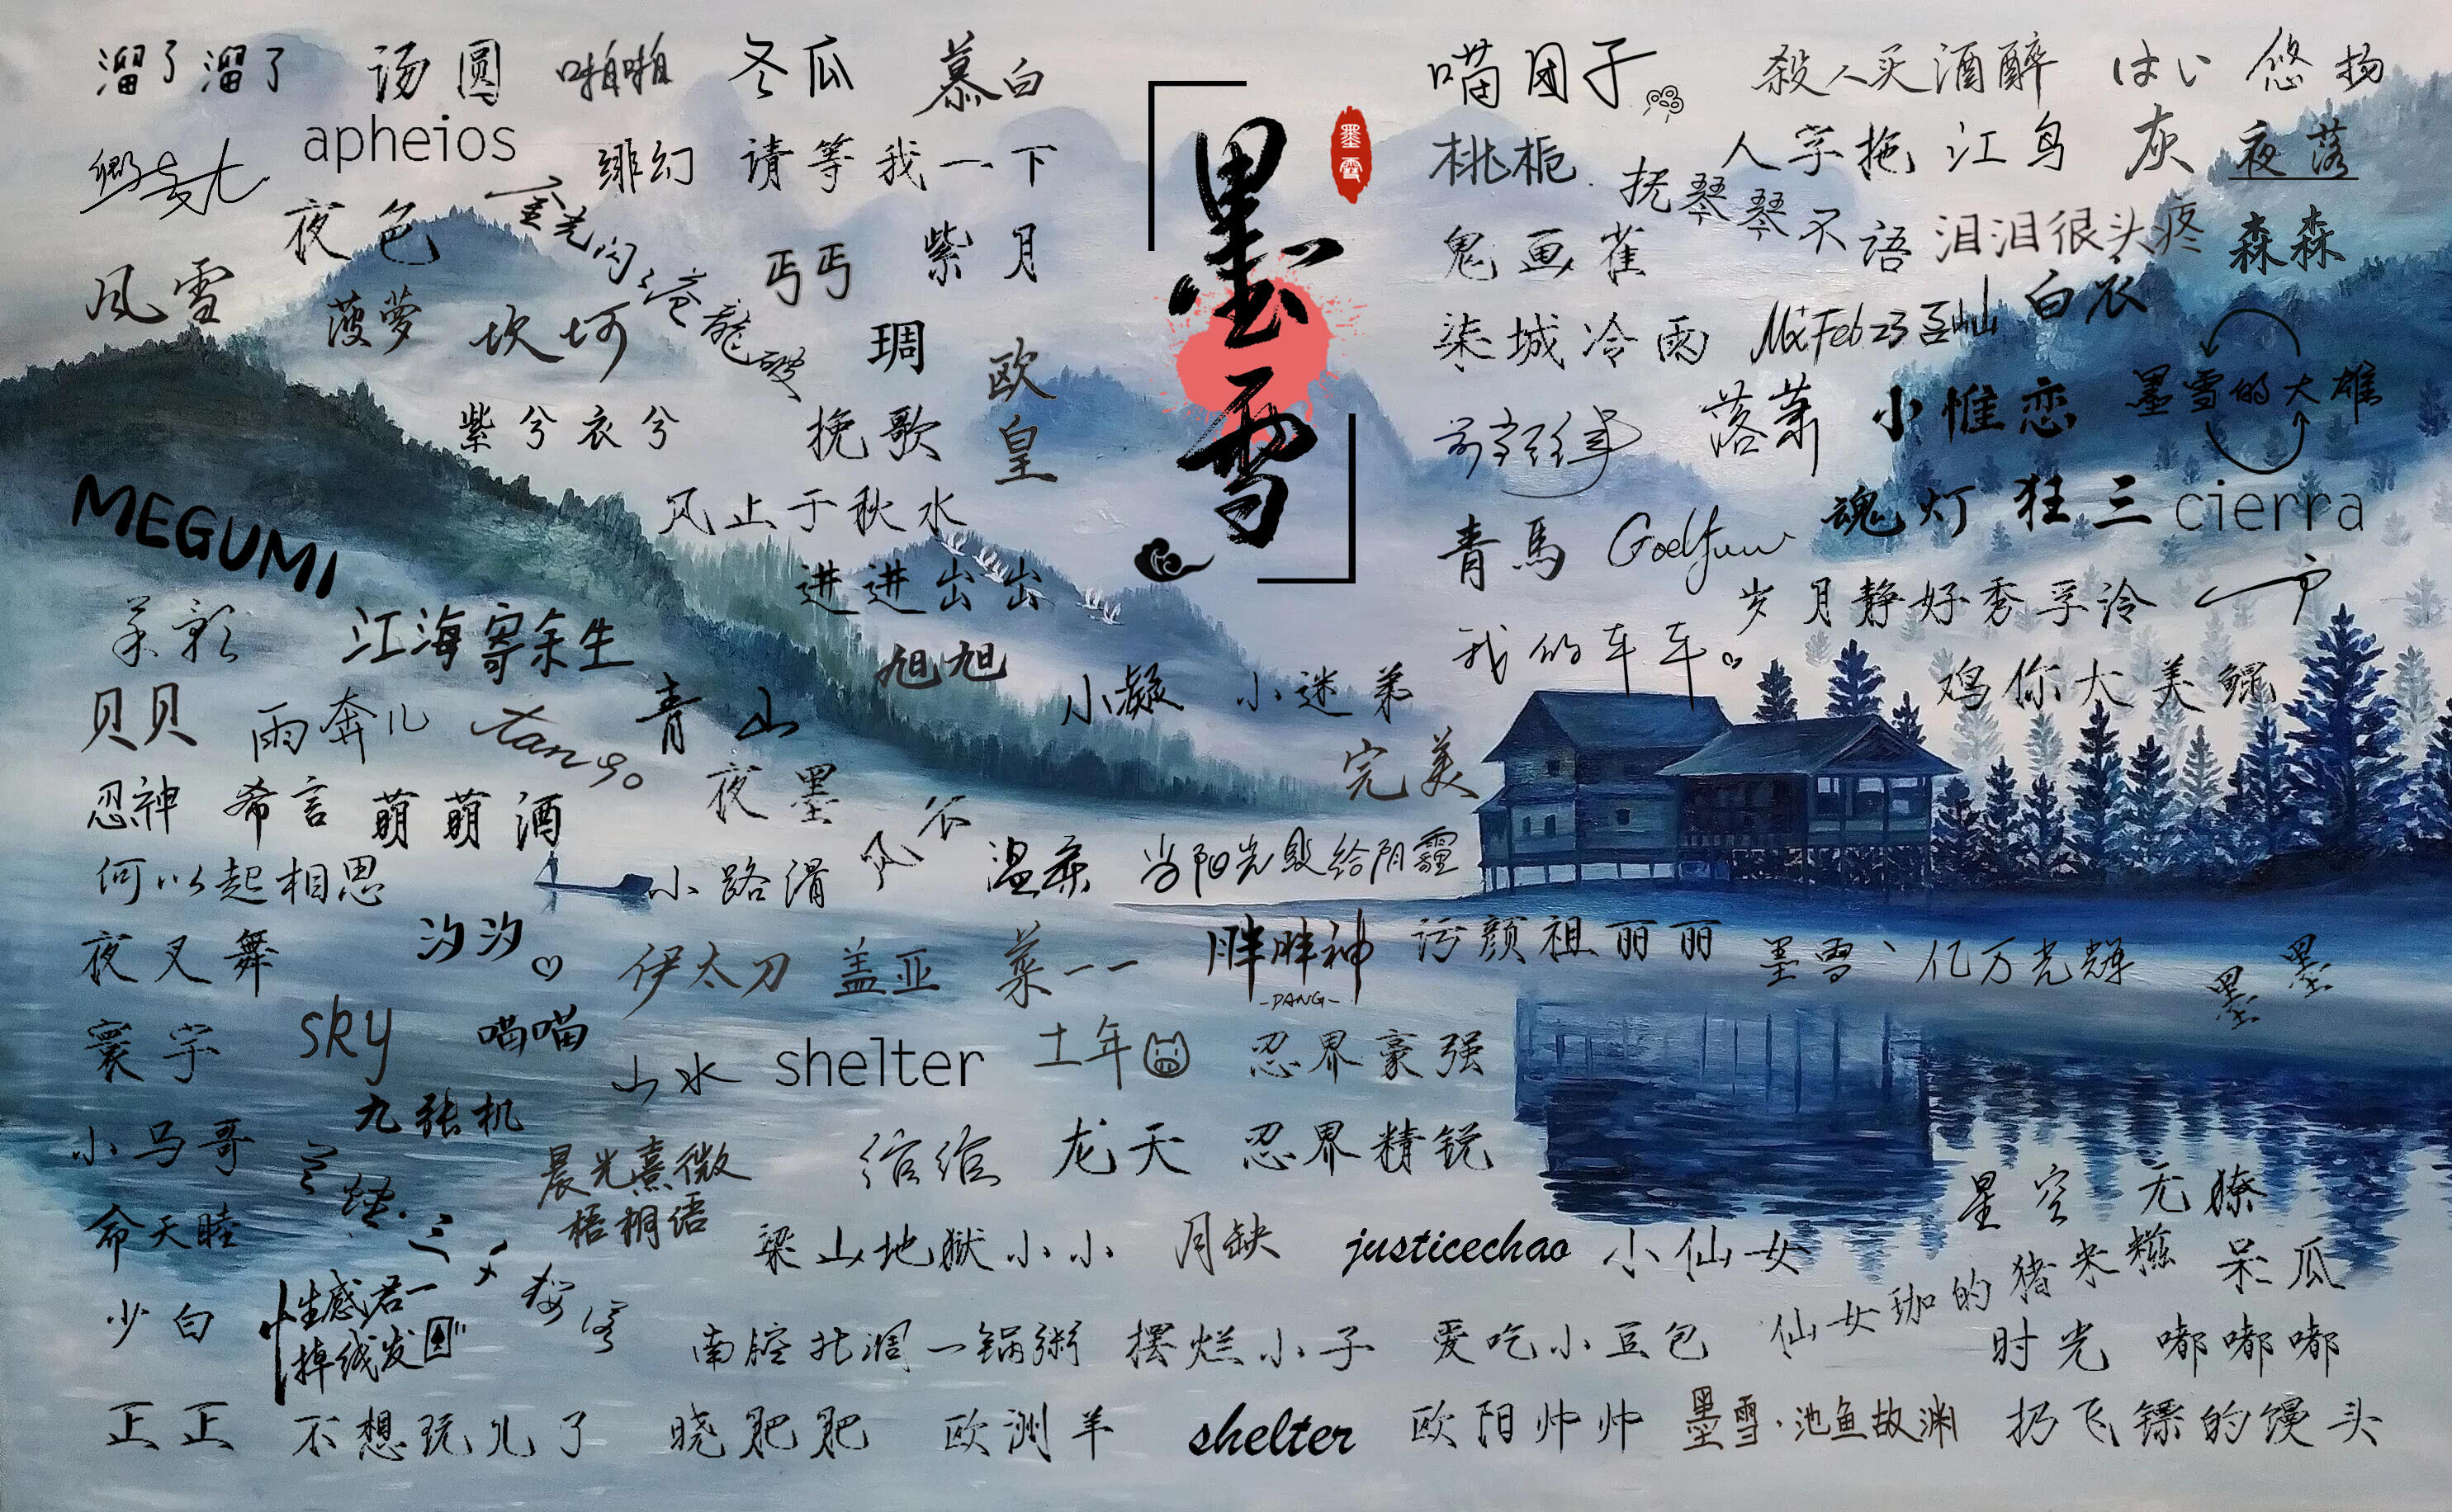 溜了溜了
汤圆
啪啪
冬瓜
慕白
apheios
绯幻
请等我一下
夜色
金光闪闪
沧龍破
丐丐
紫月
风雪
菠萝
坎坷
琱
欧皇
紫兮衣兮
挽歌
风止于秋水
MEGUMI
进进出出
江海寄余生
旭旭
贝贝
雨奔儿
tango
青山
小凝
小迷弟
完美
忍神
希言
萌萌酒
夜墨
何以起相思
小路滑
温柔
当阳光毁给阴霾
夜叉舞
汐汐
伊太刀
盖亚
菜一一
胖胖神
-PANG-
寰宇
sky
喵喵
山水
shelter
土年
忍界豪强
小马哥
九张机
晨光熹微
梧桐语
龙天
忍界精锐
命天睦
梁山地狱小小
月缺
justicechao
小仙女
少白
性感君一
掉线发图
南腔北调一锅粥
摆烂小子
爱吃小豆包
正正
不想玩儿了
晓肥肥
欧洲羊
shelter
欧阳帅帅
墨雪·池鱼故渊
扔飞镖的馒头
墨雪
墨雪
喵团子
殺人买酒醉
はい
悠扬
桃栀
人字拖
江鸟
灰
夜落
抚琴琴不语
鬼画雀
泪泪很头疼
森森
柒城冷雨
白衣
落萧
小惟恋
墨雪的大雄
青馬
魂灯
狂三
cierra
岁月静好秀孚泠
我的车车
鸡你大美鲲
污颜祖丽丽
墨雪丶亿万光辉
墨墨
星空
无獠
仙女珈的猪米糍
呆瓜
时光
嘟嘟嘟